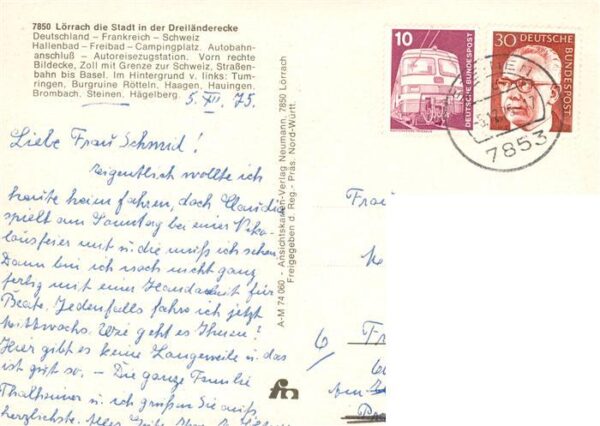 7850 Lörrach die Stadt in der Dreiländerecke
Deutschland – Frankreich – Schweiz
Hallenbad – Freibad – Campingplatz. Autobahn-
anschluß – Autoreisezugstation. Vorn rechte
Bildecke, Zoll mit Grenze zur Schweiz, Straßen-
bahn bis Basel. Im Hintergrund v. links: Tum-
ringen, Burgruine Rötteln, Haagen, Hauingen,
Brombach, Steinen, Hägelberg.
5. XII. 75.
Liebe Frau Schmid!
Eigentlich wollte ich
heute heim fahren, doch Claudia
spielt am Sonntag bei einer Niko-
lausfeier mit u. die muß ich sehen.
Dann bin ich noch nicht ganz
fertig mit einer Handarbeit für
Beate. Jedenfalls fahre ich jetzt
Mittwochs. Wie geht es Ihnen?
Hier gibt es keine Langeweile u. das
ist gut so. – Die ganze Familie
Thalheimer u. ich grüßen Sie aufs
herzlichste.
A-M 74 060 - Ansichtskarten-Verlag Neumann, 7850 Lörrach
Freigegeben d. Reg. - Präs. Nord-Württ.
10
DEUTSCHE BUNDESPOST
30
DEUTSCHE
BUNDESPOST
7853
Frau
6
Fr